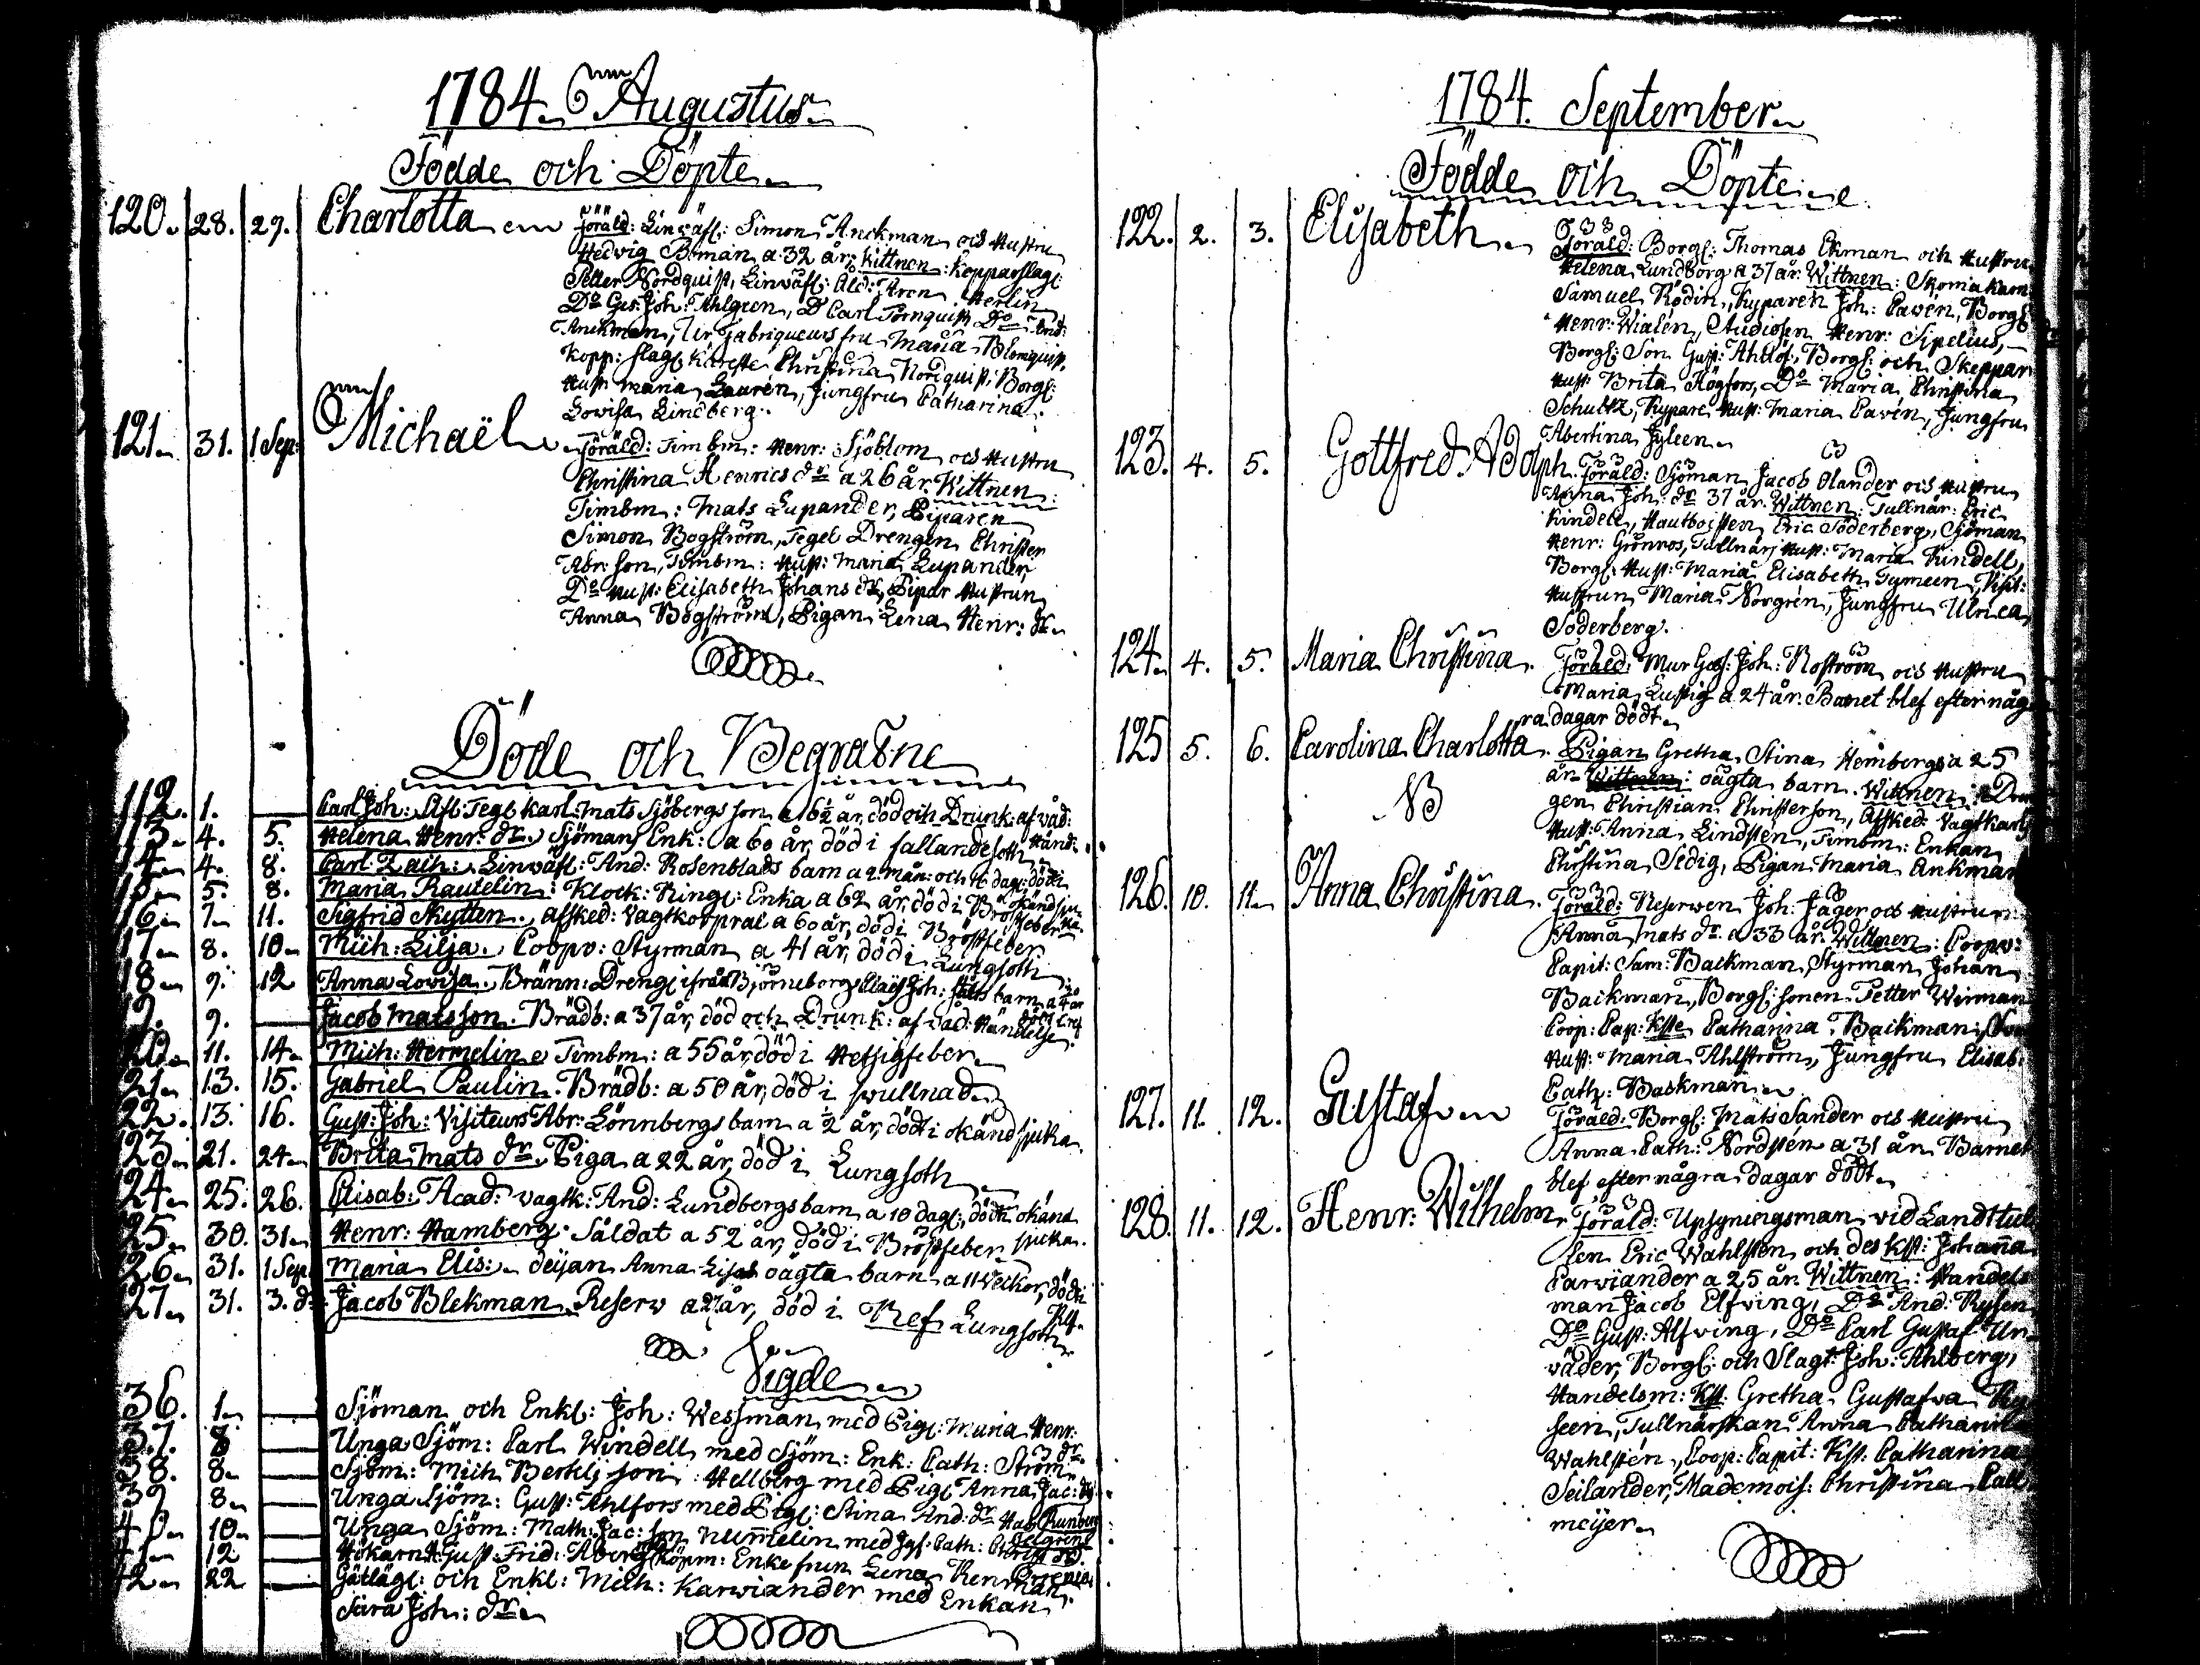 1784. Augustus.
Födde och Döpte.
120. 28. 29. Charlotta
Föräld: Linväfv: Simon Anckman och Hustru
Hedvig Boman a 32 år. Wittnen: Kopparslag:
Petter Nordquist, Linväfv: Ald: Aron Merlin
Do Gus: Joh: Ahlgren, Do Carl Törnquist, Do And:
Anckman, Fabriqueurs fru Maria Blomquist,
Kopp: slag: Käreste Christina Nordquist, Borg:
Hust: Maria Lauren, Jungfru Catharina
Lovisa Lindberg.
121. 31. 1 Sep: Michaël
Föräld: Timbm: Henr: Sjöblom och Hustru
Christina Henrics dr a 26 år. Wittnen:
Timbm: Mats Lupander, Piparen
Simon Bogström, Tegel Drengen Christer
Abr: son, Timbm: Hust: Maria Lupander,
Do Hust: Elisabeth Johans dr, Pipar Hustrun
Anna Bogström, Pigan Lena Henr: dr
Döde och Begrafne
112. 1. Carl Joh: Tegl karl Mats Sjöbergs son a 6½ år, död och Drunk: af våd:
händ:
13. 4. 5. Helena Henr: dr Sjöman Enk: a 60 år, död i fallandesoth
14. 4. 8. Carl Zach: Linväfv: And: Rosenblads barn a 2 mån: och 16 dag: död i
okänd sju
15. 5. 8. Maria Rautelin: Klock: Ring: Enka a 62 år, död i Bröstfeber
16. 7. 11. Sigfrid Skytten. afsked: Vagtkorpral a 60 år, död i Bröstfeber
17. 8. 10. Mich: Lilja. Coopv: Styrman a 41 år, död i Lungsoth
18. 9. 12 Anna Lovisa. Bränn: Dreng ifrån Björneborg Joh: barn a 4 år
19. 9. Jacob Matsson. Brädb: a 37 år, död och Drunk: af våd: Händelse.
20. 11. 14. Mich: Hermelin Timbm: a 55 år, död i Hetsigfeber
21. 13. 15. Gabriel Paulin. Brädb: a 50 år, död i svullnad
22. 13. 16. Gust: Joh: Visiteurs Abr: Lönnbergs barn a ½ år, död i okänd sjuka.
23. 21. 24. Brita Mats dr Piga a 22 år, död i Lungsoth
24. 25. 26. Elisab: Acad: vagtk: And: Lundbergs barn a 10 dag: död i okänd
sjuka.
25. 30. 31. Henr: Hamberg. Såldat a 52 år, död i Bröstfeber
26. 31. 1 Sep. Maria Elis: deijan Anna Lisas oägta barn a 11 Veckor, död i
Ref.
27. 31. 3. do Jacob Blekman. Reserv a 27 år, död i Ref Lungsoth
Vigde
36. 1. Sjöman och Enkl: Joh: Wessman med Pig: Maria Henr:
dr.
37. 8 Unga Sjöm: Carl Windell med Sjöm: Enk: Cath: Ström
38. 8. Sjöm: Mich Bertelj son Hellberg med Pig: Anna Jac: dr
39 8. Unga Sjöm: Gust: Ahlfors med Pig: Stina And: dr
40. 10. Unga Sjöm: Math: Jac: son Numelin med Jgf: Cath:
41. 12 Hökarn Gust: Frid: Aberg Köpm: Enkefrun Lena Renman
42. 22 Gästläg: och Enkl: Mich: Karviander med Enkan
Sara Joh: dr
1784. September.
Födde och Döpte
122. 2. 3. Elisabeth
Föräld: Borg: Thomas Ekman och Hustru
Helena Lundborg a 37 år. Wittnen: Skomakarn
Samuel Rödin, Kyparen Joh: Pavén, Borg:
Henr: Wialén, Studiosen Henr: Sipelius,
Borg: Son Gust: Ahllöf, Borg: och Skeppar
Hust: Brita Högfors, Do Maria Christina
Schultz, Kypare Hust: Maria Pavén, Jungfru
Albertina Jyleen
123. 4. 5. Gottfred Adolph.
Föräld: Sjöman Jacob Olander och Hustru
Anna Joh: dr 37 år. Wittnen: Tullnär: Eric
Kindell, Hautboisten Eric Söderberg, Sjöman
Henr: Grönroos, Tullnär: Hust: Maria Kindell,
Borg: Hust: Maria Elisabeth Tymeen,
Hustrun Maria Norgrén, Jungfru Ulrica
Söderberg.
124. 4. 5. Maria Christina.
Föräld: Mur Ges: Joh: Roström och Hustru
Maria Lustig a 24 år. Barnet blef efter någ
ra dagar dödt.
125 5. 6. Carolina Charlotta.
Pigan Gretha Stina Hembergs a 25
år oägta barn. Wittnen: Dren
gen Christian Christerson, Afsked: Vagtkarls
Hust: Anna Lindsten, Timbm: Enkan
Christina Sedig, Pigan Maria Ankman
NB
126. 10. 11. Anna Christina.
Föräld: Reserven Joh: Jäger och Hustrun
Anna Mats dr a 33 år. Wittnen: Coopv:
Capit: Sam: Backman, Styrman Johan
Backman, Borg: sonen Petter Wirman
Coop: Cap: Kste Catharina Backman,
Hust: Maria Ahlström, Jungfru Elisab:
Cath: Backman
127. 11. 12. Gustaf
Föräld: Borg: Mats Sander och Hustru
Anna Cath: Nordsten a 31 år. Barnet
blef efter några dagar dödt.
128. 11. 12. Henr: Wilhelm.
Föräld: Upsyningsman vid Landttul
len Eric Wahlsten och des Kst: Johanna
Carviander a 25 år. Wittnen: Handels
man Jacob Elfving, Do And: Rysen
Do Gust: Alfving, Do Carl Gustaf Un
väder, Borg: och Slagt: Joh: Ahlberg,
Handelsm: Kst: Gretha Gustafva Ry
seen, Tullnärskan Anna Catharina
Wahlstén, Coop: Capit: Kst: Catharina
Seilander, Mademois: Christina Call
meijer